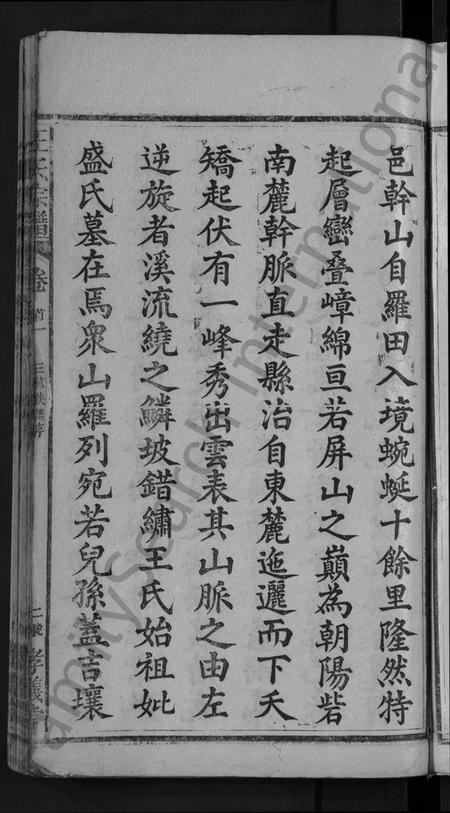 邑幹山自羅田入境蜿蜒十餘里隆然特
起層巒叠嶂綿亘若屏山之巔為朝陽砦
南麓幹脈直走縣治自東麓迤邐而下夭
矯起伏有一峰秀出雲表其山脈之由左
逆旋者溪流繞之鱗坡錯繡王氏始祖妣
盛氏墓在焉衆山羅列宛若兒孫蓋吉壤
王氏宗譜
卷首一
FamilySearch International